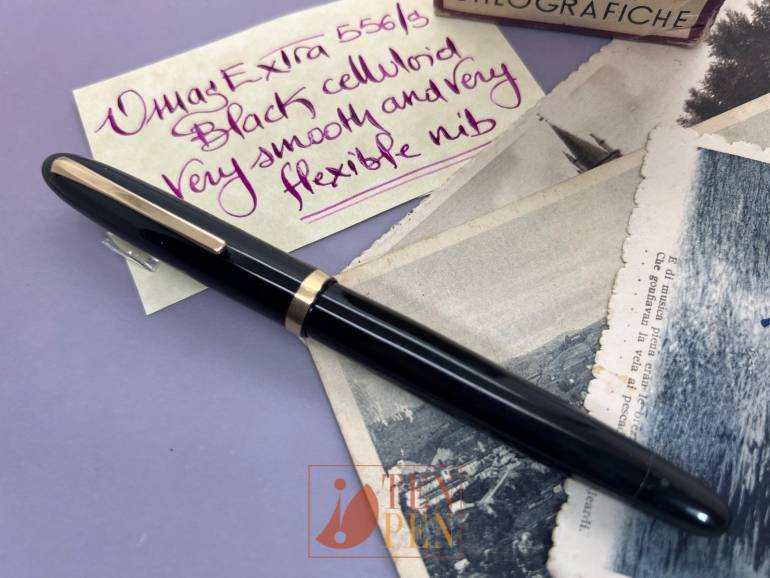 STILOGRAFICHE
Omas Extra 556/S
Black celluloid
Very smooth and very
flexible nib
E di musica piena
Che gonfiavan la vela ai
TEN
PEN